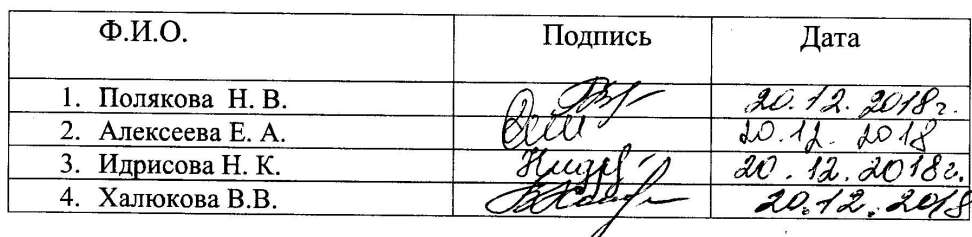 Ф.И.О. Подпись Дата
1. Полякова Н. В. 20.12.2018г.
2. Алексеева Е. А. 20.12. 2018
3. Идрисова Н. К. 20.12.2018г.
4. Халюкова В.В. 20.12.2018